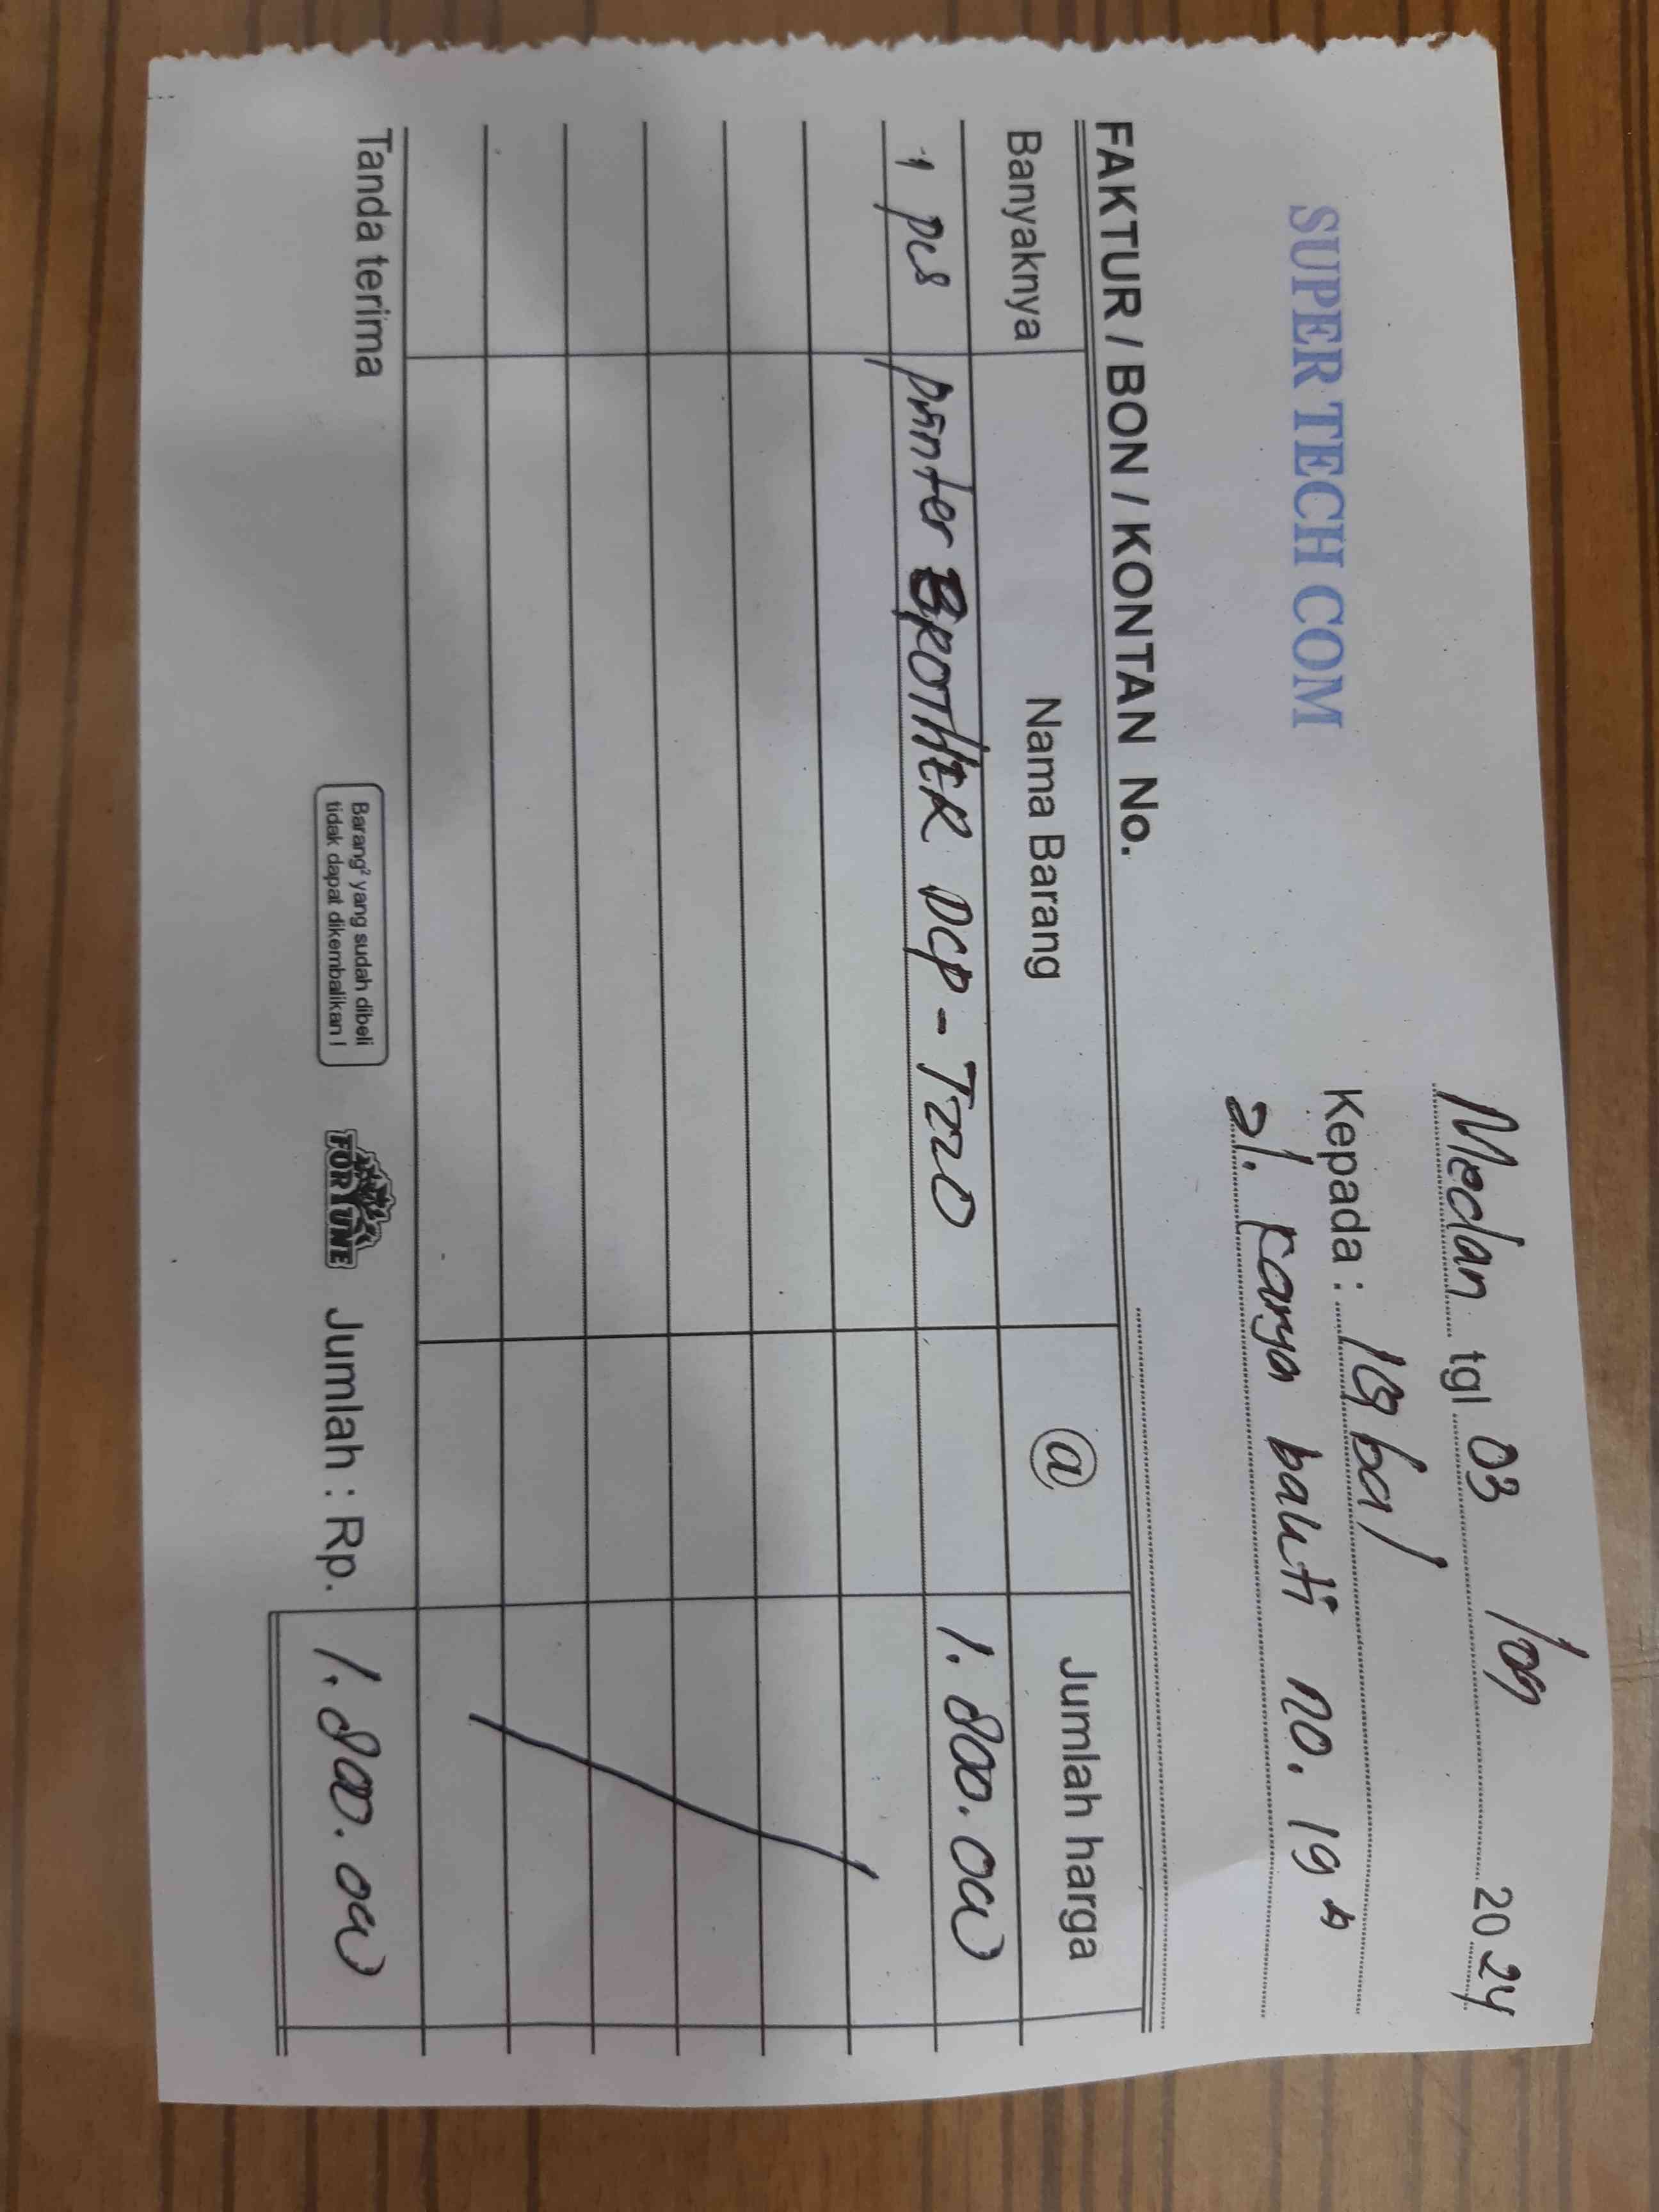 Medan tgl 03 / 09 2024
SUPER TECH COM
Kepada : Iqbal
Jl. Karya bakti no. 19 A
FAKTUR / BON / KONTAN No.
Banyaknya Nama Barang @ Jumlah harga
1 pcs printer BROTHER DCP - T220 1.800.000
Tanda terima
Barang² yang sudah dibeli
tidak dapat dikembalikan !
FORTUNE
Jumlah : Rp. 1.800.000